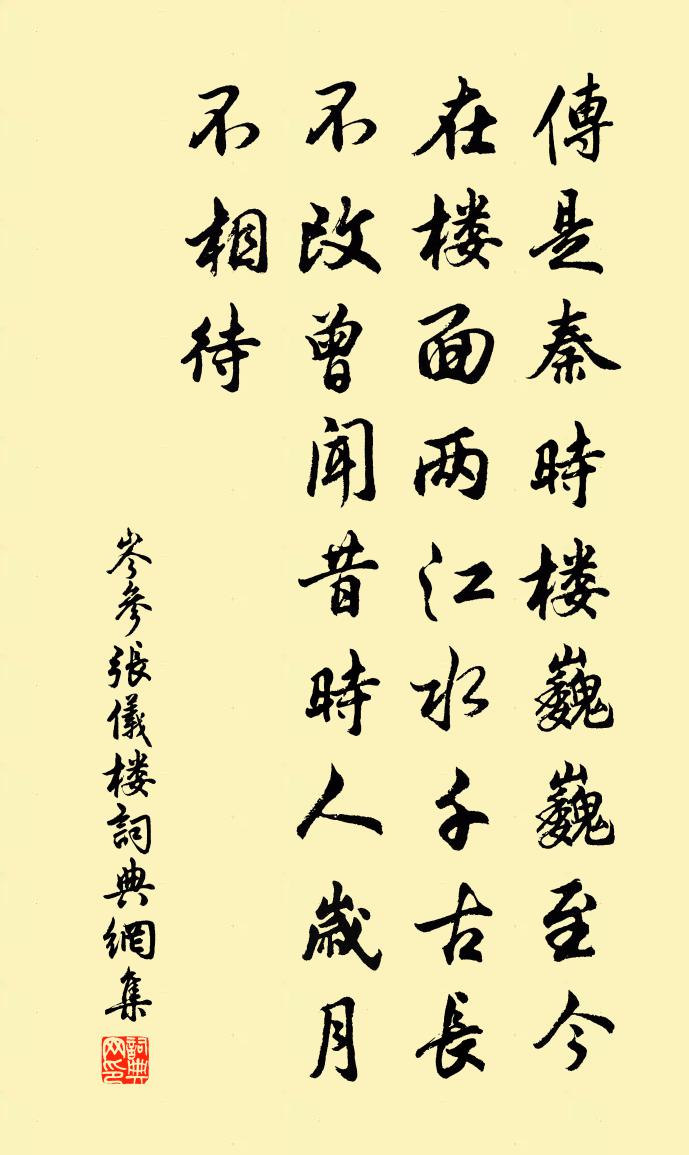 傳是秦時楼巍巍至今
在楼面两江水千古長
不改曾聞昔時人歲月
不相待
岑參張儀楼詞典網集
詞典网印